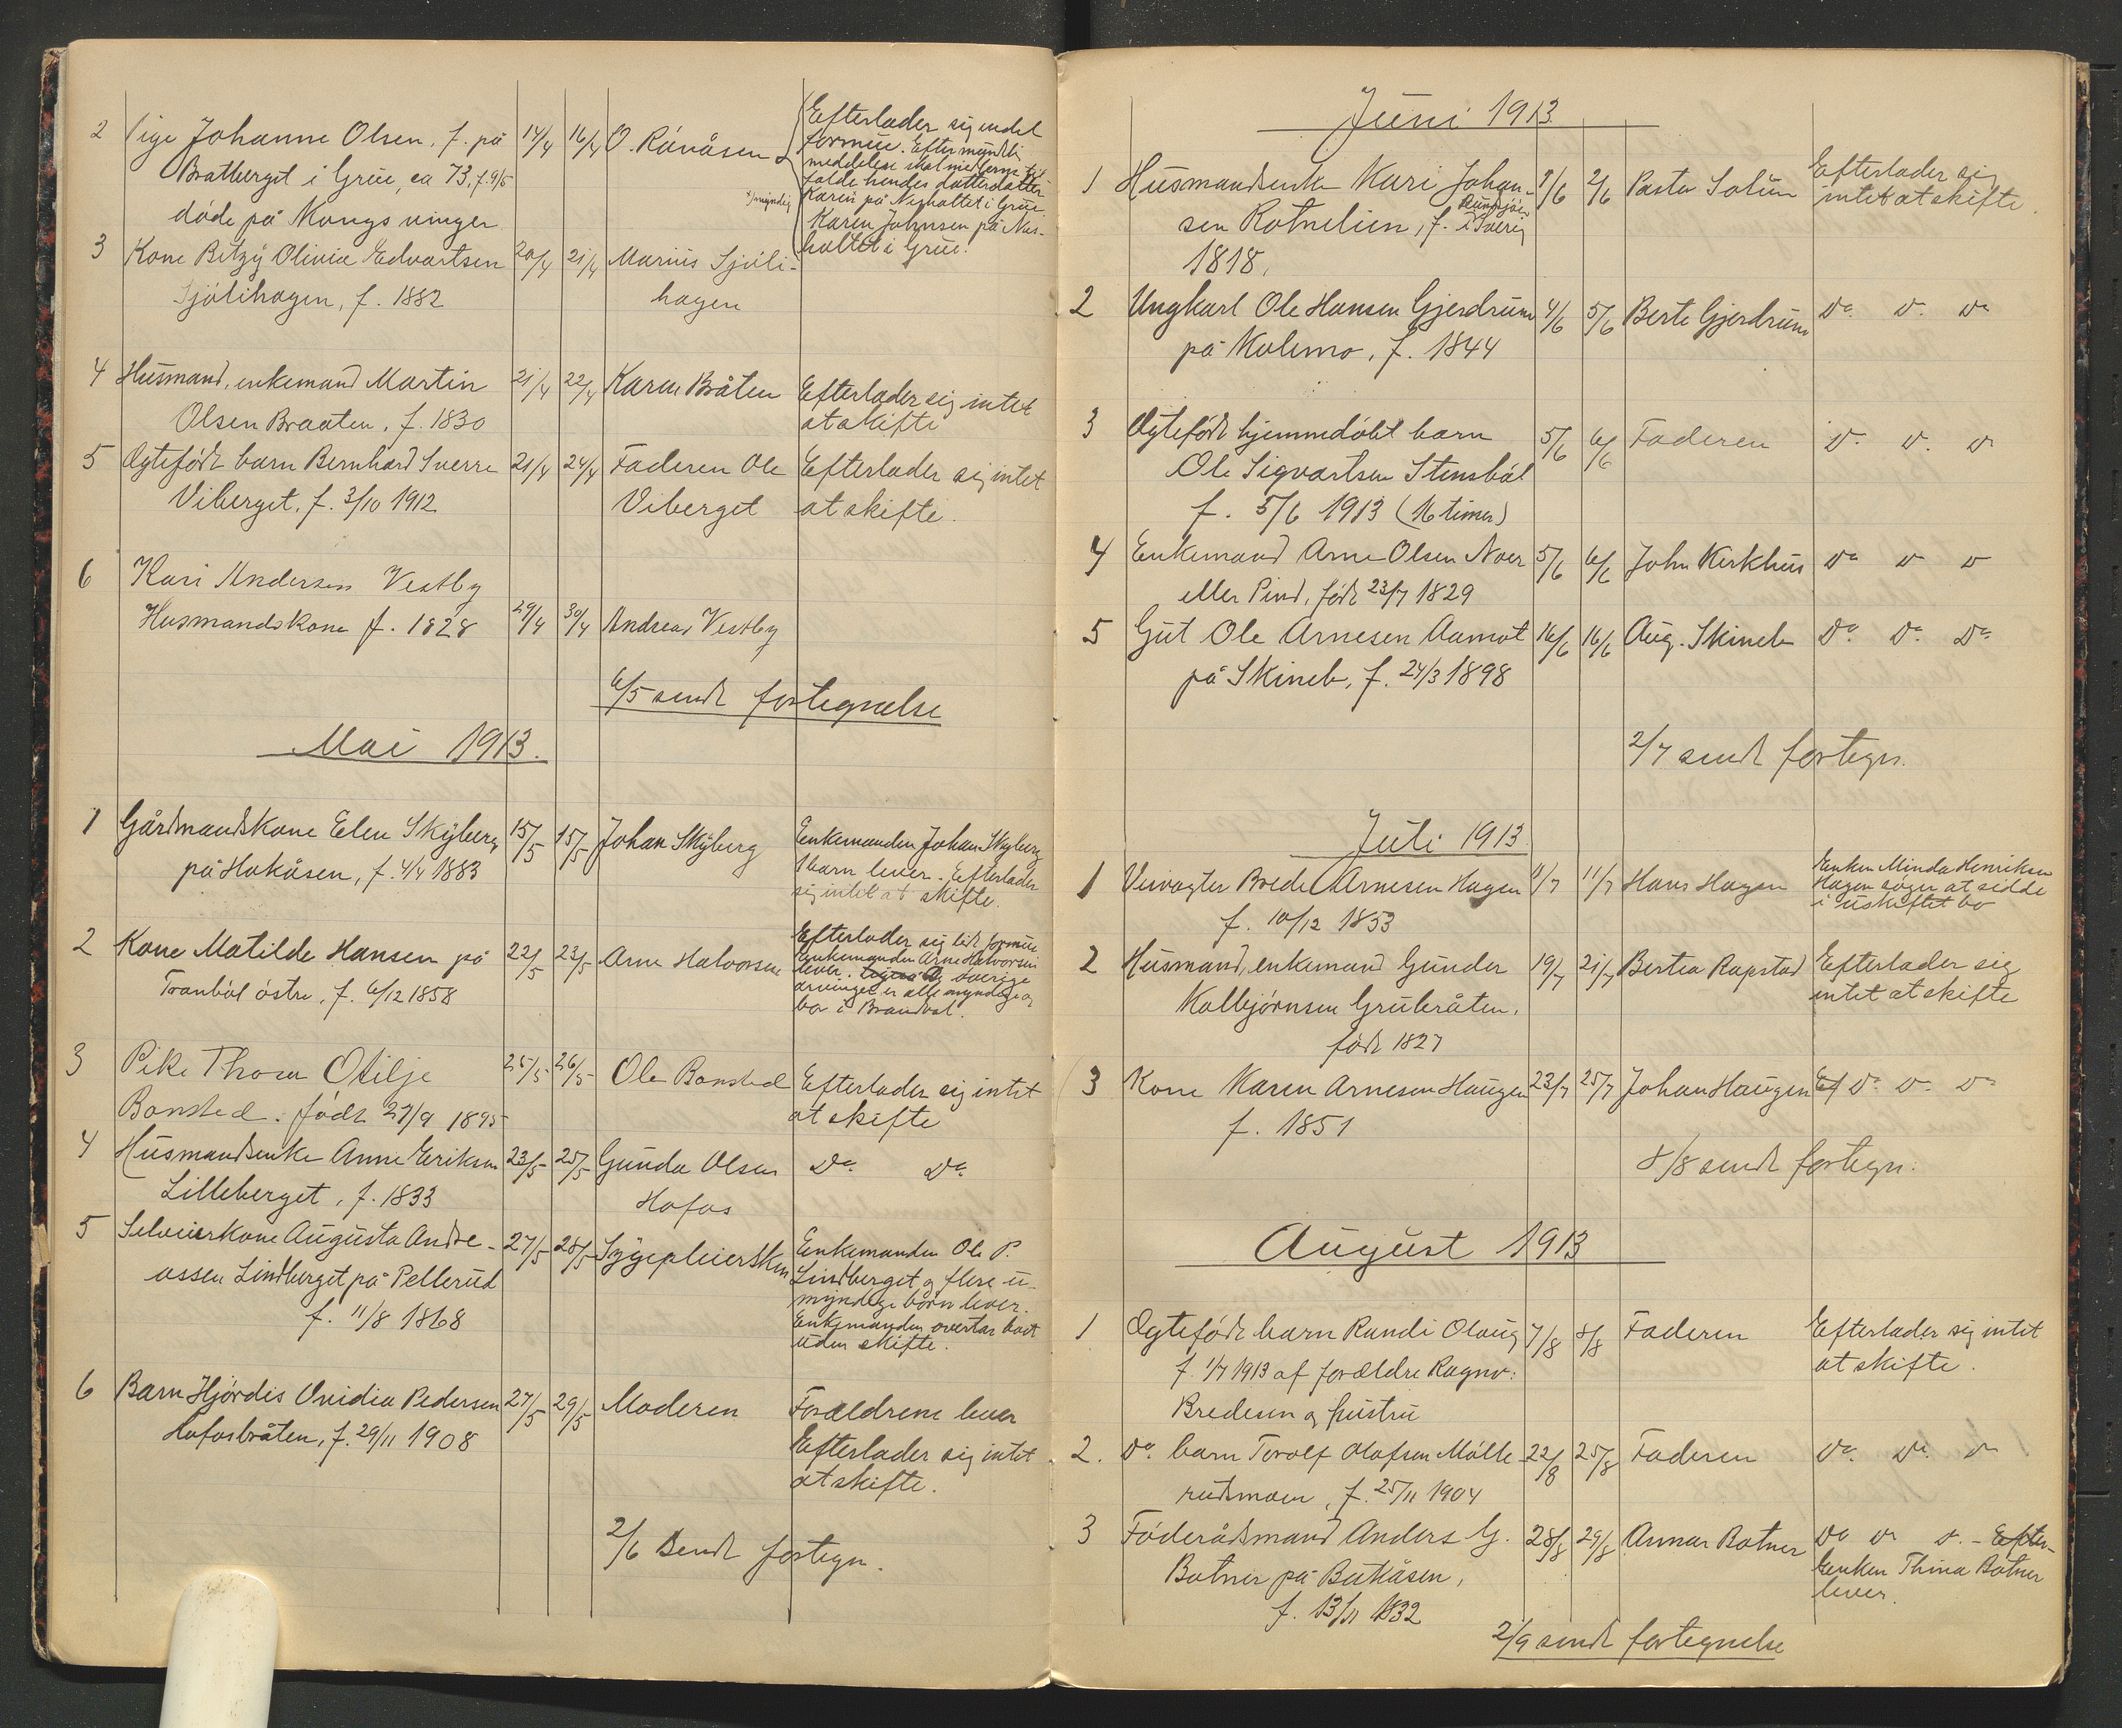 2 Pige Johanne Olsen, f. på 14/4 16/4 O. Rånåsen
Bratberget i Grue, ca 73, f. 9/5
døde på Kongsvinger
Efterlader sig endel
formue. Efter mundtli
meddelese skal midlerne til
falde hendes datterdatter
Karen på Neshaltet i Grue.
Karen Johnsen på Nes-
haltet i Grue.
myndig
3 Kone Betzy Olivia Edvartsen 20/4 21/4 Marius Sjøli-
Sjølihagen, f. 1882 hagen
4 Husmand, enkemand Martin 21/4 22/4 Karen Bråten Efterlader sig intet
Olsen Braaten, f. 1830 at skifte
5 Ægtefødt barn Bernhard Sverre 21/4 24/4 Faderen Ole Efterlader sig intet
Viberget, f. 3/10 1912 Viberget at skifte.
6 Kari Andersen Vestby
Husmandskone f. 1828 29/4 30/4 Andreas Vestby
6/5 sendt fortegnelse
Mai 1913.
1 Gårdmandskone Elen Skyberg 15/5 15/5 Johan Skyberg Enkemanden Johan Skyberg
på Hokåsen, f. 4/4 1883 1 barn lever. Efterlader
sig intet at skifte.
2 Kone Matilde Hansen på 22/5 23/5 Arne Halvorsen Efterlader sig lidt formue
Tranbøl østre, f. 6/12 1858 Enkemanden Arne Halvorsen
lever. øvrige
arvinger er alle myndige og
bor i Brandval.
3 Pike Thora Otilje 25/5 26/5 Ole Bonsted Efterlader sig intet
Bonsted. født 27/9 1895 at skifte
4 Husmandsenke Anne Eriksen 23/5 25/5 Gunda Olsen Do. Do.
Lilleberget, f. 1833 Hofos
5 Selveierkone Augusta Andre- 27/5 28/5 Sygepleiersken Enkemanden Ole P.
assen Lindberget på Pellerud Lindberget og flere u-
f. 11/8 1868 myndige børn lever.
Enkemanden overtar boet
uden skifte.
6 Barn Hjørdis Ovidia Pedersen 27/5 29/5 Moderen Forældrene lever
Hofosbråten, f. 29/11 1908 Efterlader sig intet
at skifte.
2/6 Sendt fortegn.
Juni 1913
1 Husmandsenke Kari Johan- 2/6 Pastor Solum Efterlader sig
sen Rotnelien, f. i Sverig intet at skifte.
1818.
2 Ungkarl Ole Hansen Gjerdrum 4/6 5/6 Berte Gjerdrum Do. D. Do
på Kolmo, f. 1844
3 Ægtefødt hjemmedøbt barn 5/6 6/6 Faderen D. D. D
Ole Sigvartsen Stensbøl
f. 5/6 1913 (16 timer)
4 Enkemand Arne Olsen Noer 5/6 6/6 John Kirkhus Do D D
eller Pind, født 23/7 1829
5 Gut Ole Arnesen Aamot 16/6 16/6 Aug. Skineb Do. D. Do.
på Skineb, f. 24/3 1898
2/7 sendt fortegn.
Juli 1913
1 Veivogter Brede Arnesen Hagen 11/7 Hans Hagen Enken Minda Henriksen
f. 10/12 1853 Hagen søger at sidde
i uskiftet bo
2 Husmand, enkemand Gunder 19/7 21/7 Bertea Rapstad Efterlader sig
Kolbjørnsen Grubråten, intet at skifte
født 1827
3 Kone Karen Arnesen Haugen 23/7 25/7 Johan Haugen Ef D. D. D
f. 1851
8/8 sendt fortegn.
August 1913
1 Ægtefødt barn Randi Olaug 7/8 8/8 Faderen Efterlader sig intet
f. 1/7 1913 af forældre Ragnv. at skifte.
Bredesen og hustru
2. Do. barn Torolf Olafsen Mølle 22/8 25/8 Faderen Do. D. D
rudsmoen, f. 25/11 1904
3 Føderådsmand Anders G. 28/8 29/8 Annar Botner Do D D. - Efter-
Botner på Butåsen, Enken Thina Botner
f. 13/11 1832 lever.
2/9 sendt fortegnelse